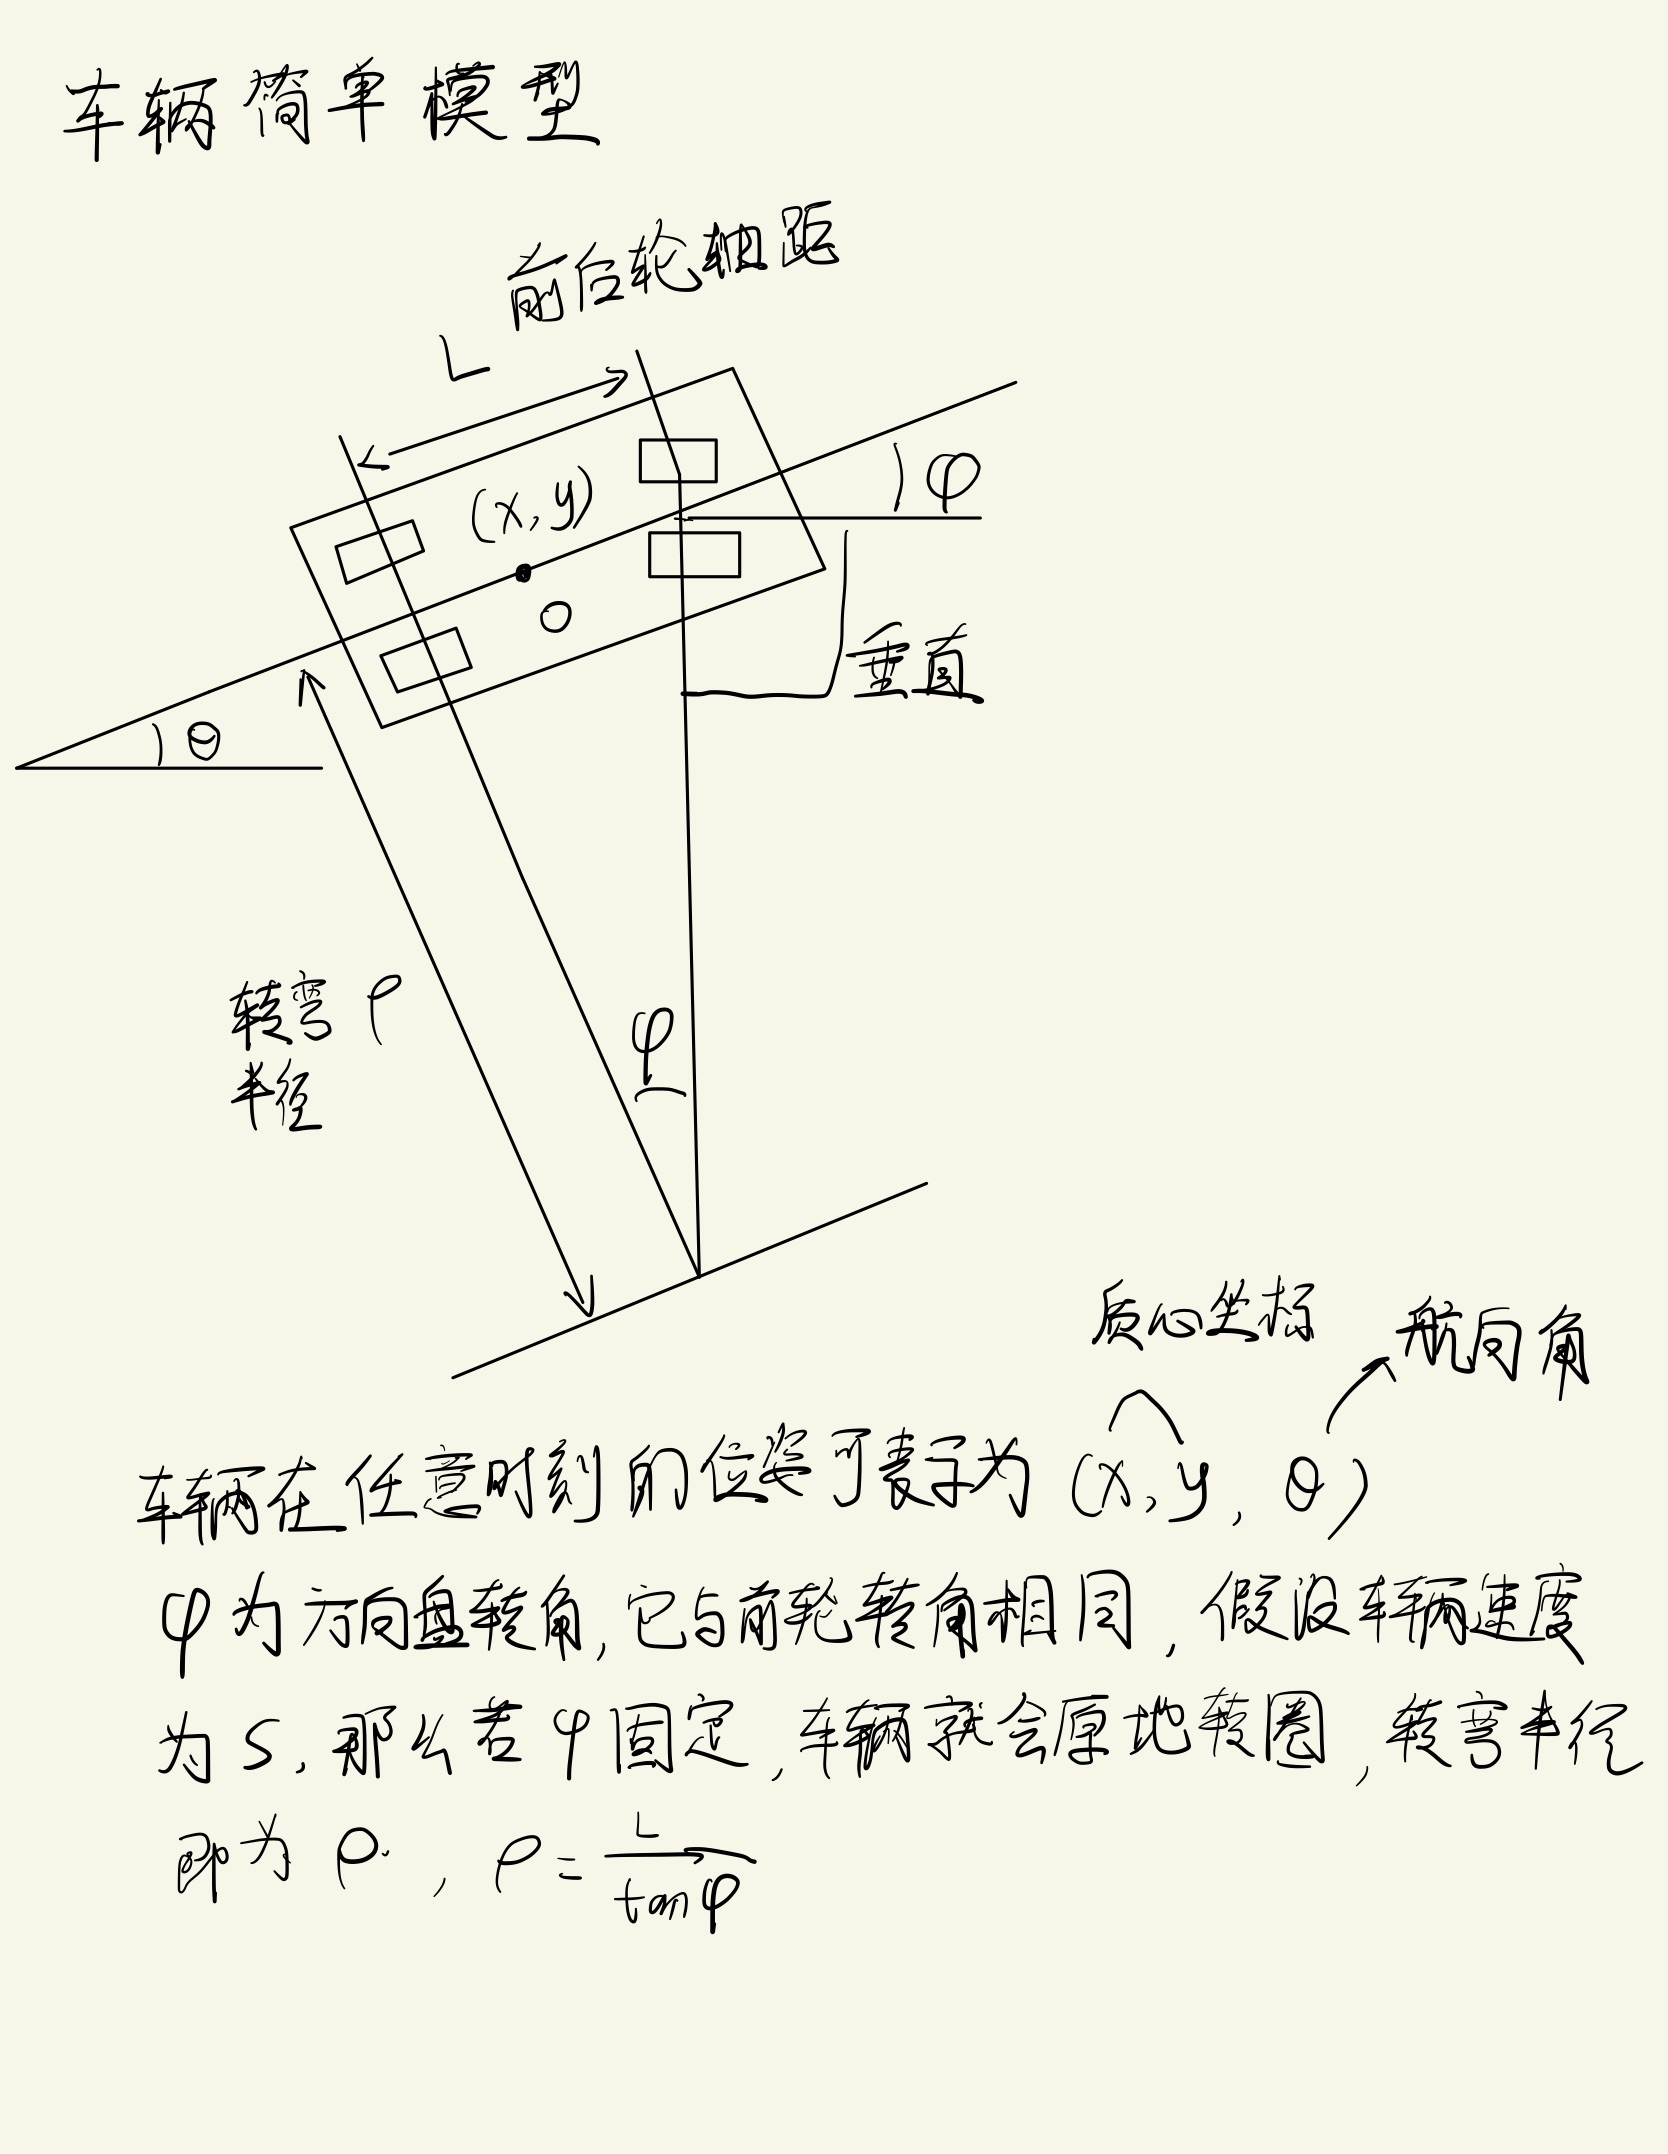 车辆简单模型
前后轮轴距
L
(x,y)
φ
O
垂直
θ
转弯 ρ
半径
φ
质心坐标
航向角
车辆在任意时刻的位姿可表示为 (x,y,θ)
φ为方向盘转角,它与前轮转角相同,假设车辆速度
为S,那么若φ固定,车辆就会原地转圈,转弯半径
即为ρ. , ρ = L/tanφ